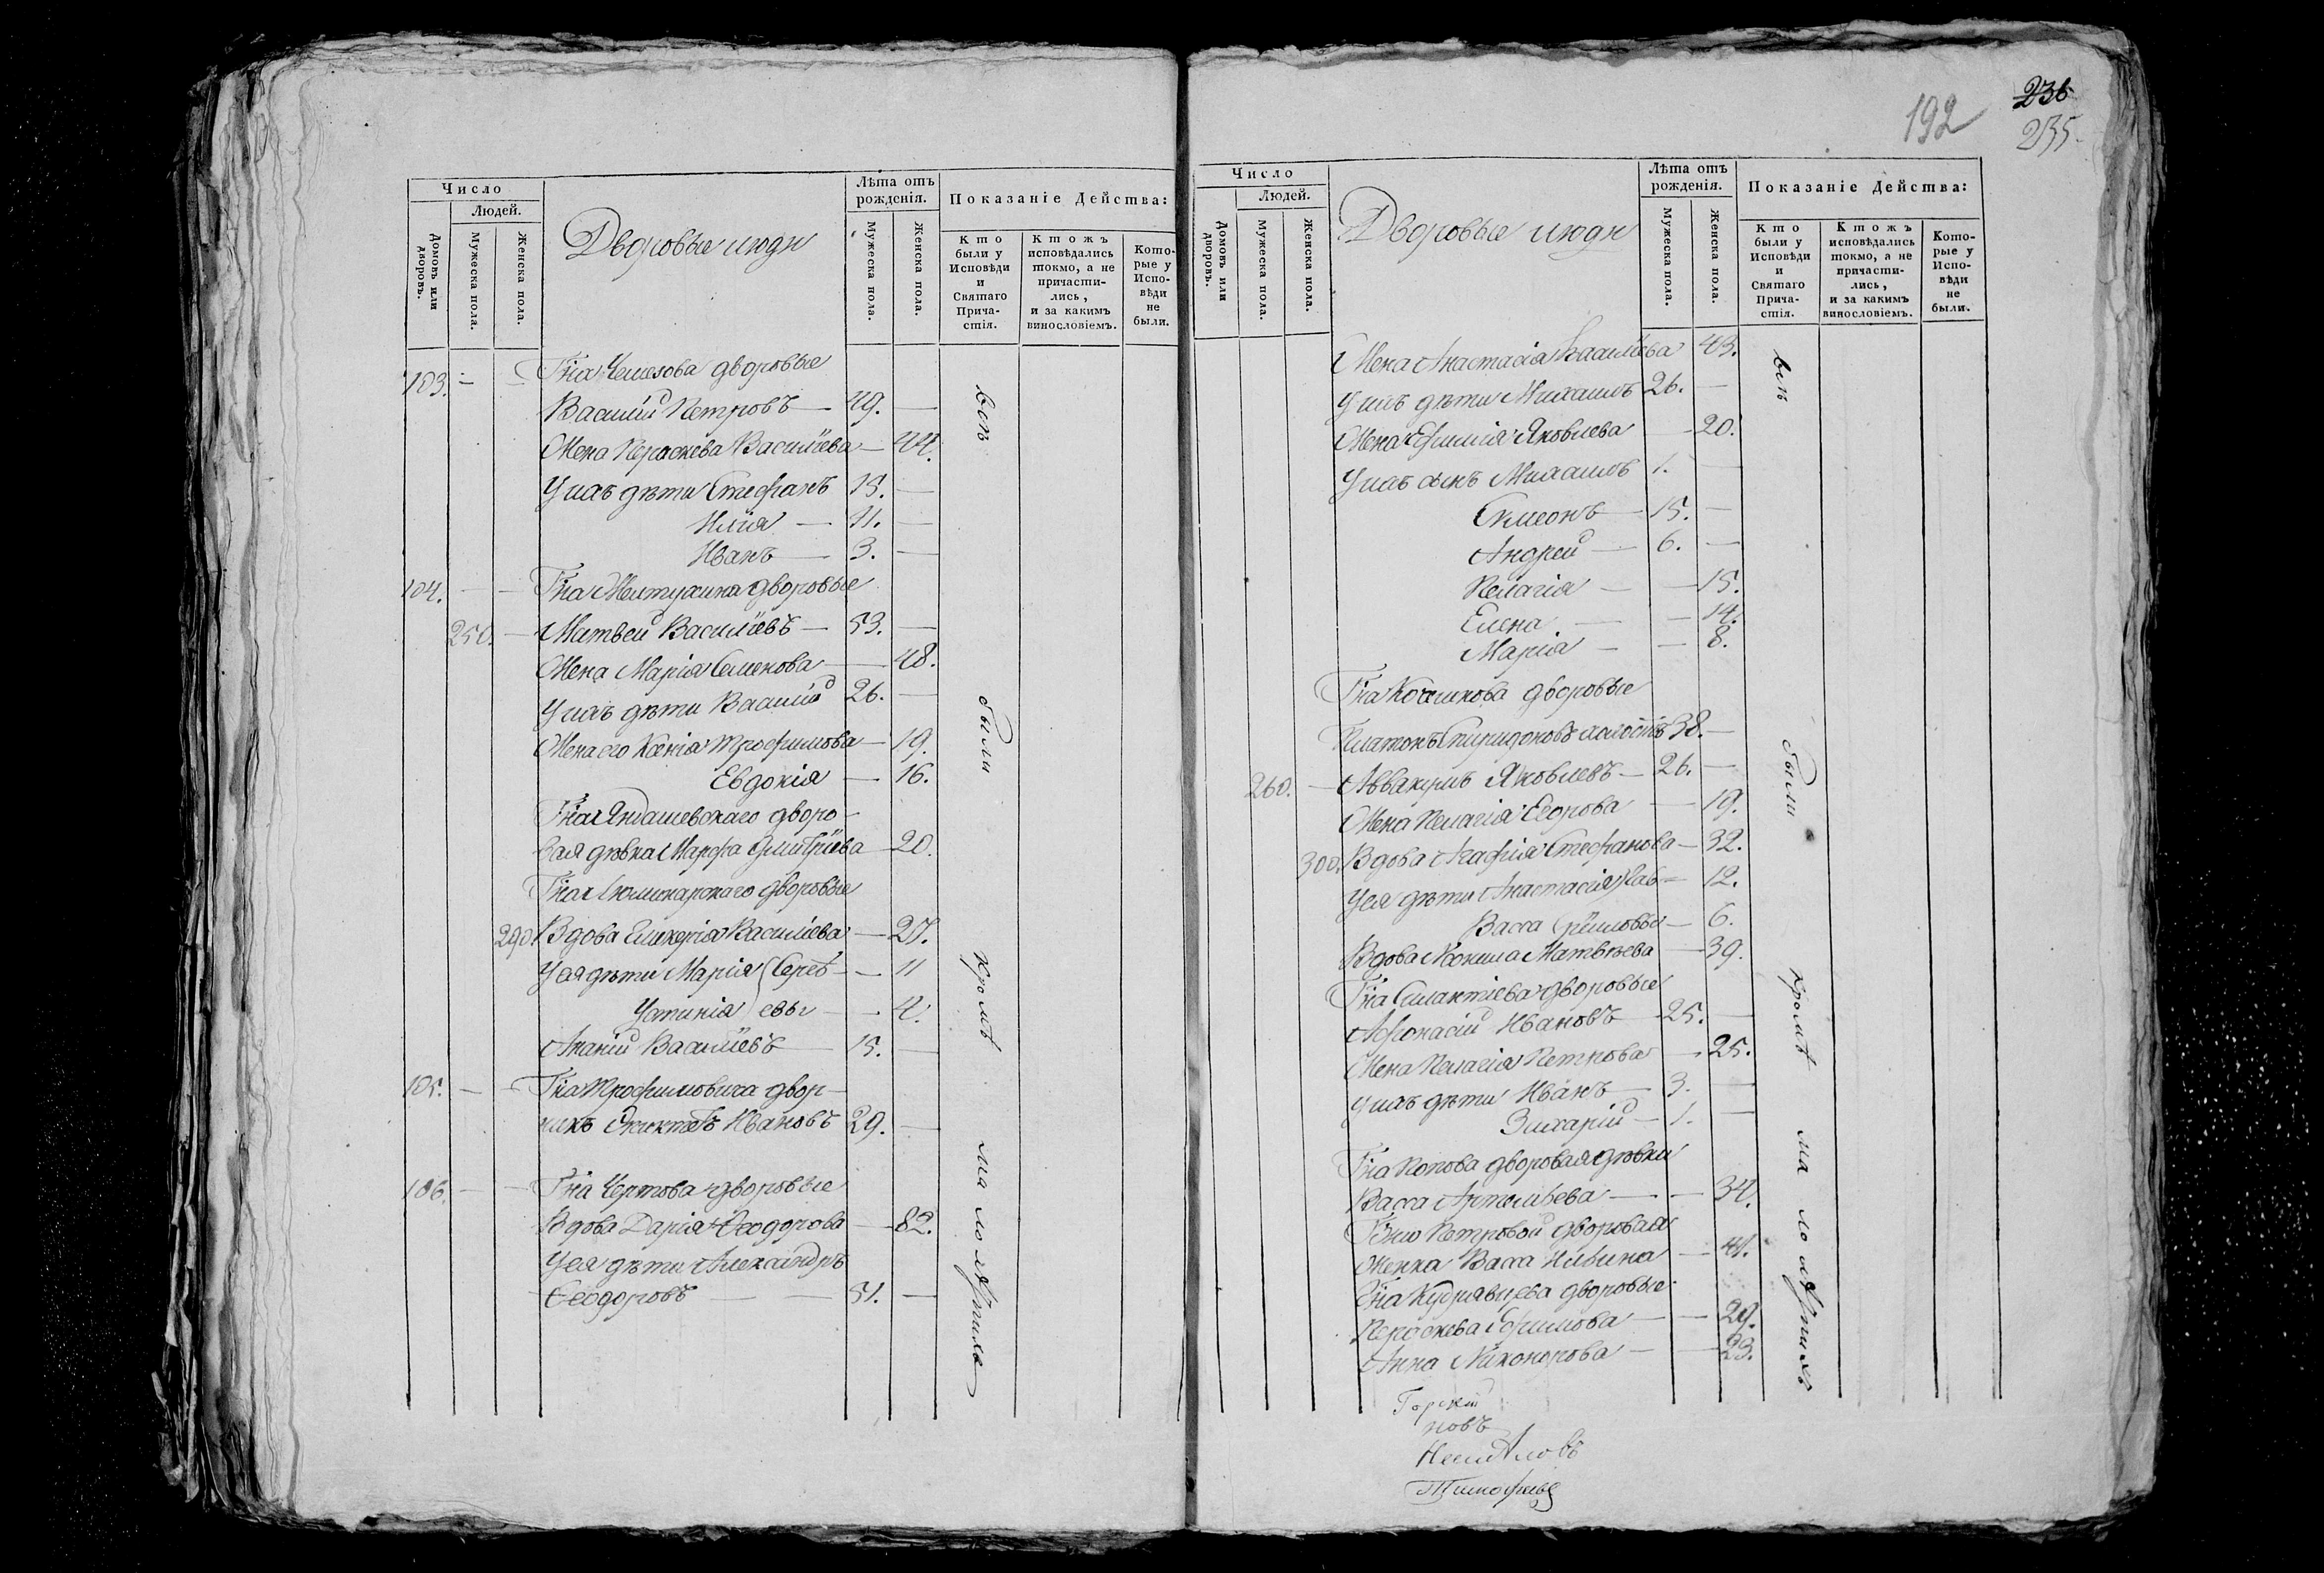 Число
Людей.
Домовъ или дворовъ.
Мужеска пола.
Женска пола.
Дворовые люди
Лѣта отъ рожденія.
Мужеска пола.
Женска пола.
Показаніе Действа:
Кто были у Исповѣди и Святаго Прича-стія.
Ктожъ исповѣдались токмо, а не причасти-лись, и за какимъ винословіемъ.
Кото-рые у Испо-вѣди не были.
103. — — Гна дворовые
Василій Петровъ — 49. —
Жена Параскева Василіева — 44.
У нихъ дѣти Стефанъ 13. —
Илія — 11. —
Иванъ — 3. —
104. — — Гна дворовые
250. — Матвей Василіевъ — 53. —
Жена Марія Семенова — 48.
У нихъ дѣти Василій 26. —
Жена его Ксенія Трофимова — 19.
Евдокія — 16.
Гна дворо-
вая дѣвка Марфа Дмитріева — 20.
Гна дворовые
290. Вдова Василіева — 27.
У ея дѣти Марія Серге- — 11
Устинія евы — 4.
Ананій Василіевъ — 15. —
105. — — Гна Трофимовича двор-
никъ Ивановъ 29. —
106. — — Гна Чертова дворовые
Вдова Дарія Ѳеодорова — 82.
У ея дѣти Александръ
Ѳеодоровъ — 51. —
всѣ были кромѣ малолѣтнихъ
192
236
235.
Число
Людей.
Домовъ или дворовъ.
Мужеска пола.
Женска пола.
Дворовые люди
Лѣта отъ рожденія.
Мужеска пола.
Женска пола.
Показаніе Действа:
Кто были у Исповѣди и Святаго Прича-стія.
Ктожъ исповѣдались токмо, а не причасти-лись, и за какимъ винословіемъ.
Кото-рые у Испо-вѣди не были.
Жена Анастасія Василіева 43.
У нихъ дѣти Михаилъ 26. —
Жена Яковлева — 20.
У нихъ сынъ Михаилъ 1. —
Симеонъ — 15. —
Андрей — 6. —
Пелагія — — 15.
Елена — — 14.
Марія — — 8.
Гна дворовые
Платонъ Спиридоновъ 38. —
260. — Аввакумъ Яковлевъ — 26. —
Жена Пелагія Егорова — 19.
300. Вдова Агафія Стефанова — 32.
У ея дѣти Анастасія Гав- — 12.
Васса риловы — 6.
Вдова Матвѣева — 39.
Гна дворовые
Афонасій Ивановъ 25. —
Жена Пелагія Петрова — 25.
У нихъ дѣти Иванъ — 3. —
Захарій — 1. —
Гна Попова дворовая дѣвка
Васса Артемьева — — 34.
Гжи Петровой дворовая
Женка Васса Ильина — 41.
Гна Кудрявцева дворовые
Параскева Ефимова — — 29.
Анна Никонорова — — 23.
всѣ были кромѣ малолѣтнихъ